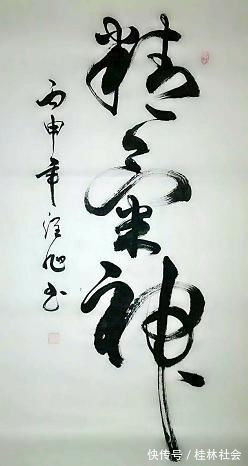 精氣神
丙申年旭书
快传号／桂林社会